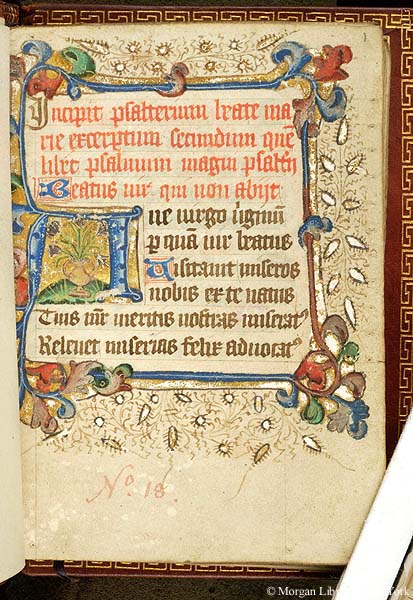 Incipit psalterium beate ma
rie excerptum secundum quē
libet psalmum magni psalt̄ij
Beatus uir qui non abijt
Aue uirgo lignum
p quā uir beatus
Distanit miseros
nobis ex te natus
Tuis iur̄ meritis nostras miserat⁹
Releuet miserias felix aduocat⁹
No. 18.
© Morgan Library York